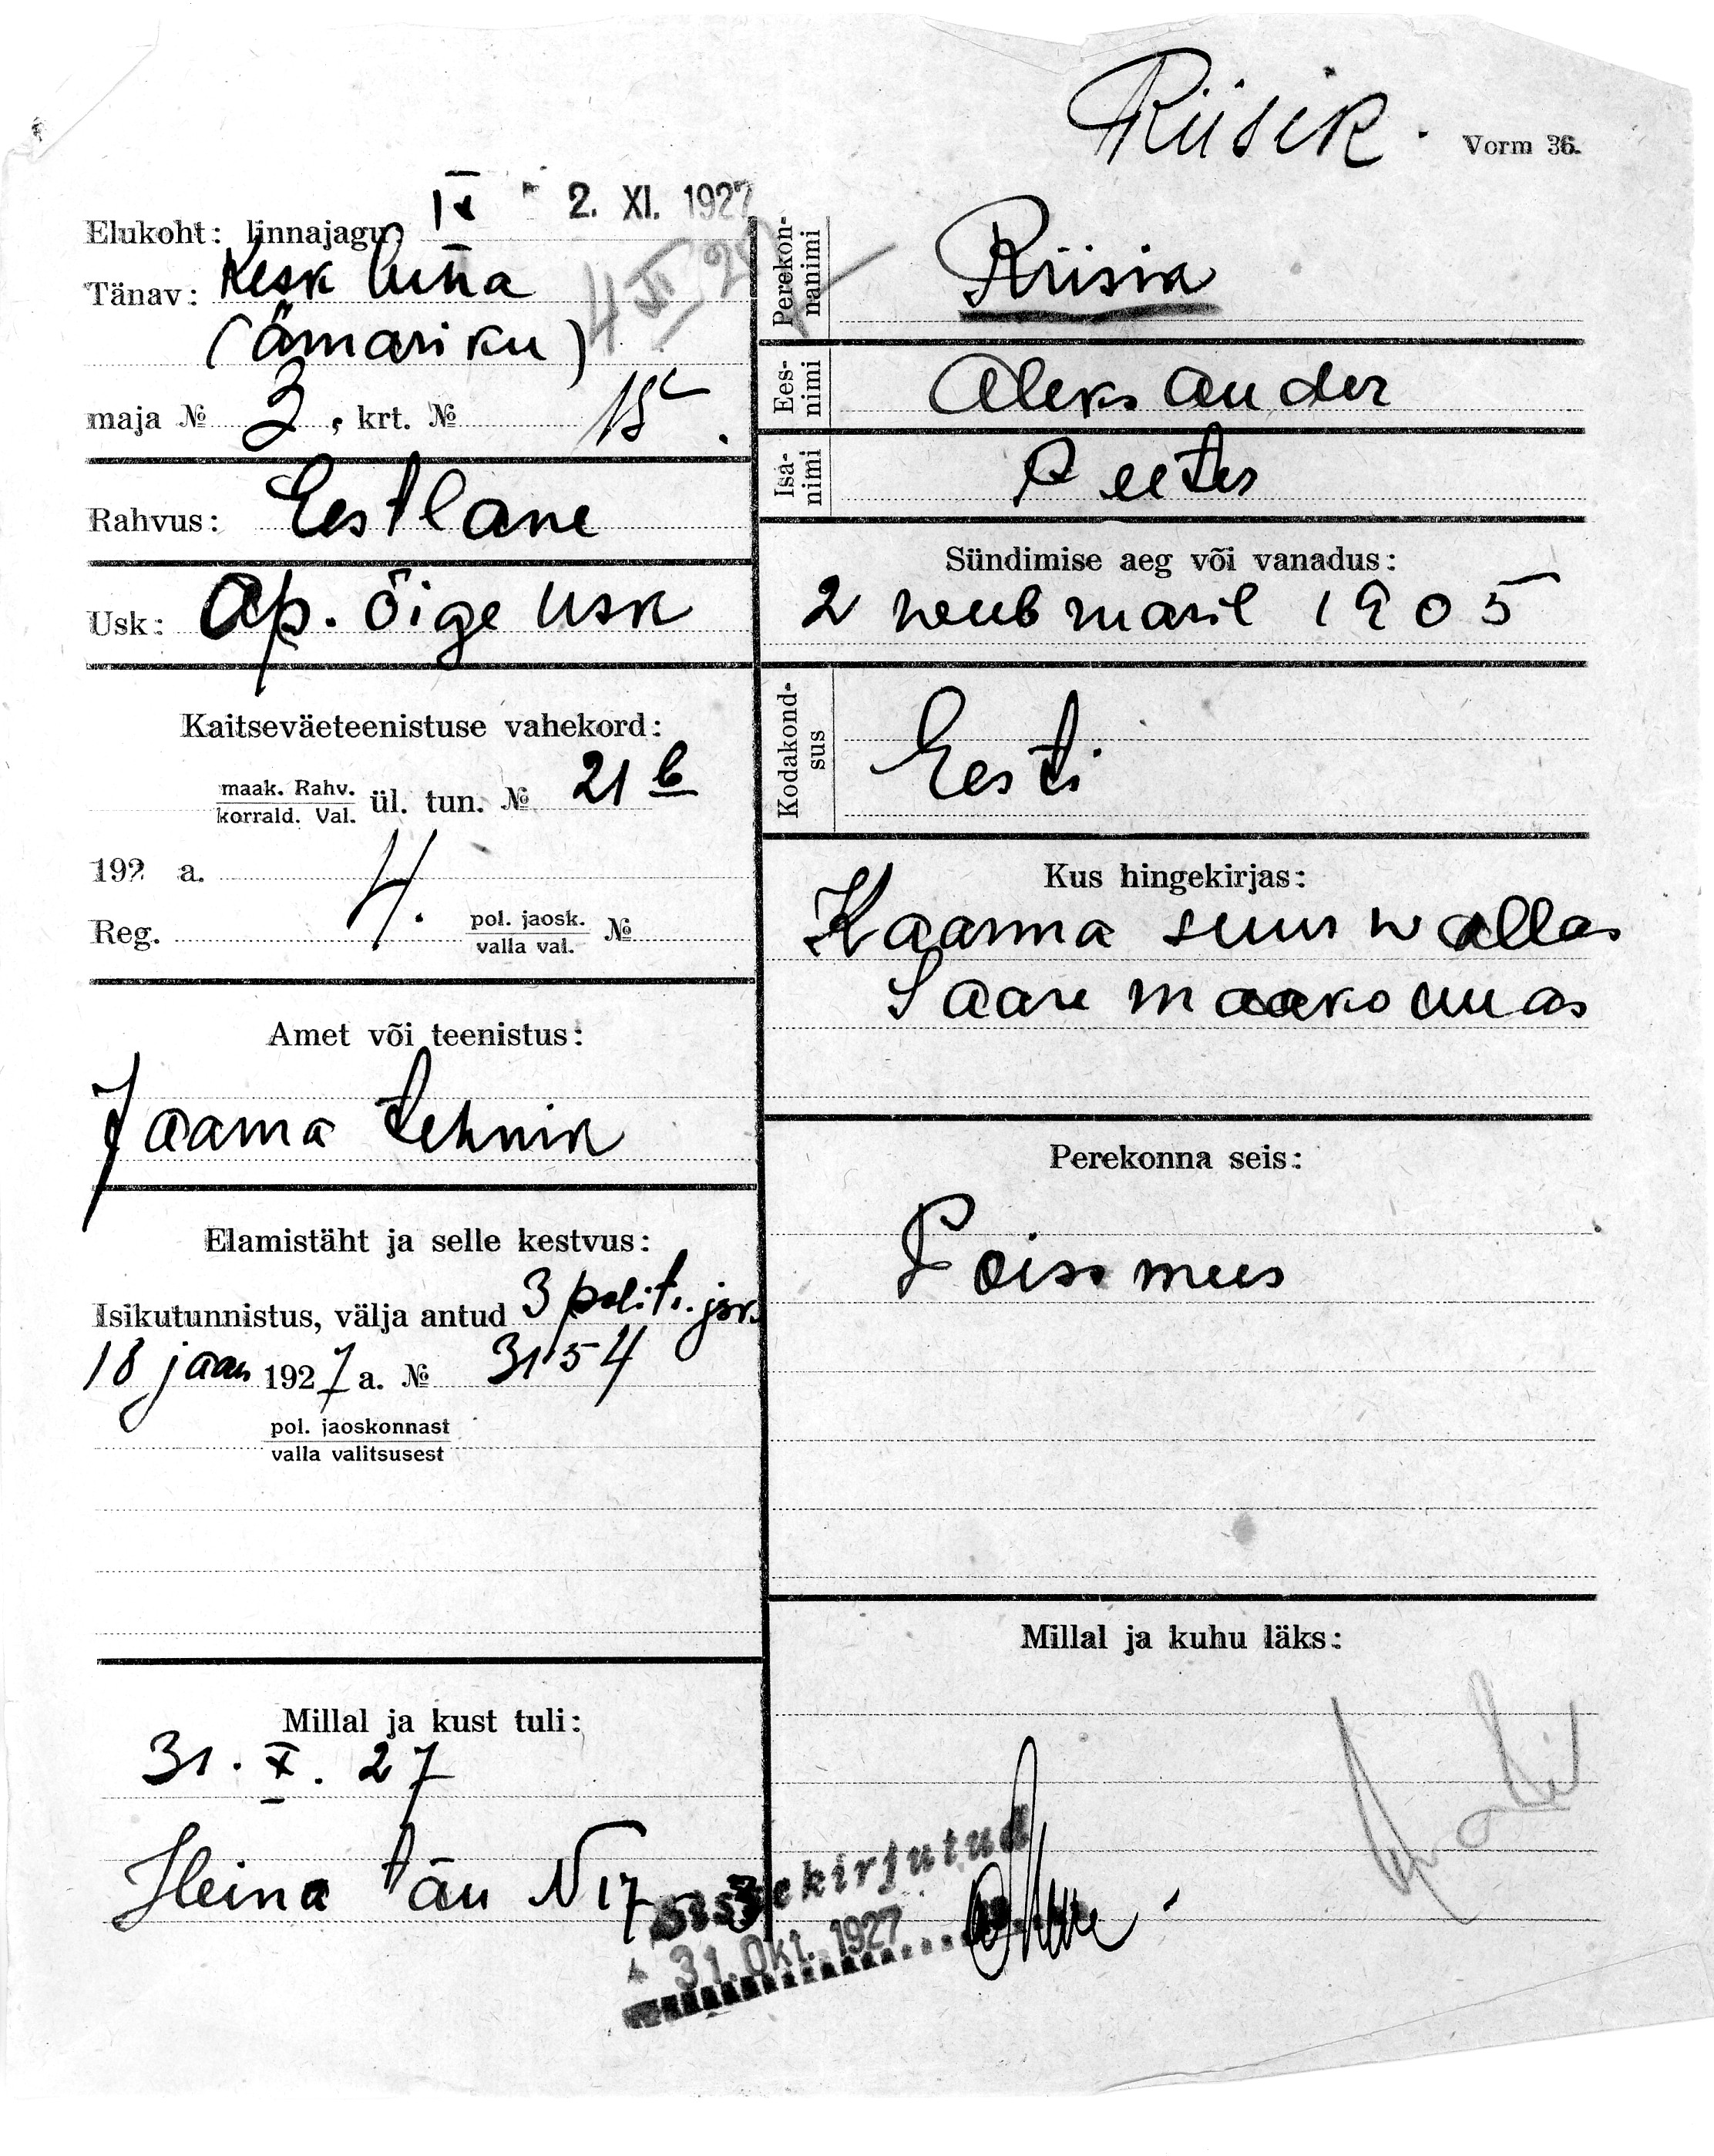 Riisik.
Vorm 36.
2. XI. 1927
Elukoht: linnajagu IV
4 XI 27
Tänav: Kesk Luha
(Ämariku)
maja № 3, krt. № 15.
Rahvus: Eestlane
Usk: Ap. õige usk
Kaitseväeteenistuse vahekord:
maak. Rahv.
korrald. Val.
ül. tun. № 21 b
192 a.
Reg. 4. pol. jaosk. №
valla val.
Amet või teenistus:
Jaama tehnik
Elamistäht ja selle kestvus:
Isikutunnistus, välja antud 3 polits. jsk.
18 jaan 1927 a. № 3154
pol. jaoskonnast
valla valitsusest
Millal ja kust tuli:
31. X. 27
Heina tän N 17-3
Sissekirjutud
31. Okt. 1927
Perekonnanimi Riisik
Eesnimi Aleksander
Isanimi Peeter
Sündimise aeg või vanadus:
2 weebruaril 1905
Kodakondsus Eesti
Kus hingekirjas:
Kaarma suur wallas
Saare maakonnas
Perekonna seis:
Poissmees
Millal ja kuhu läks: